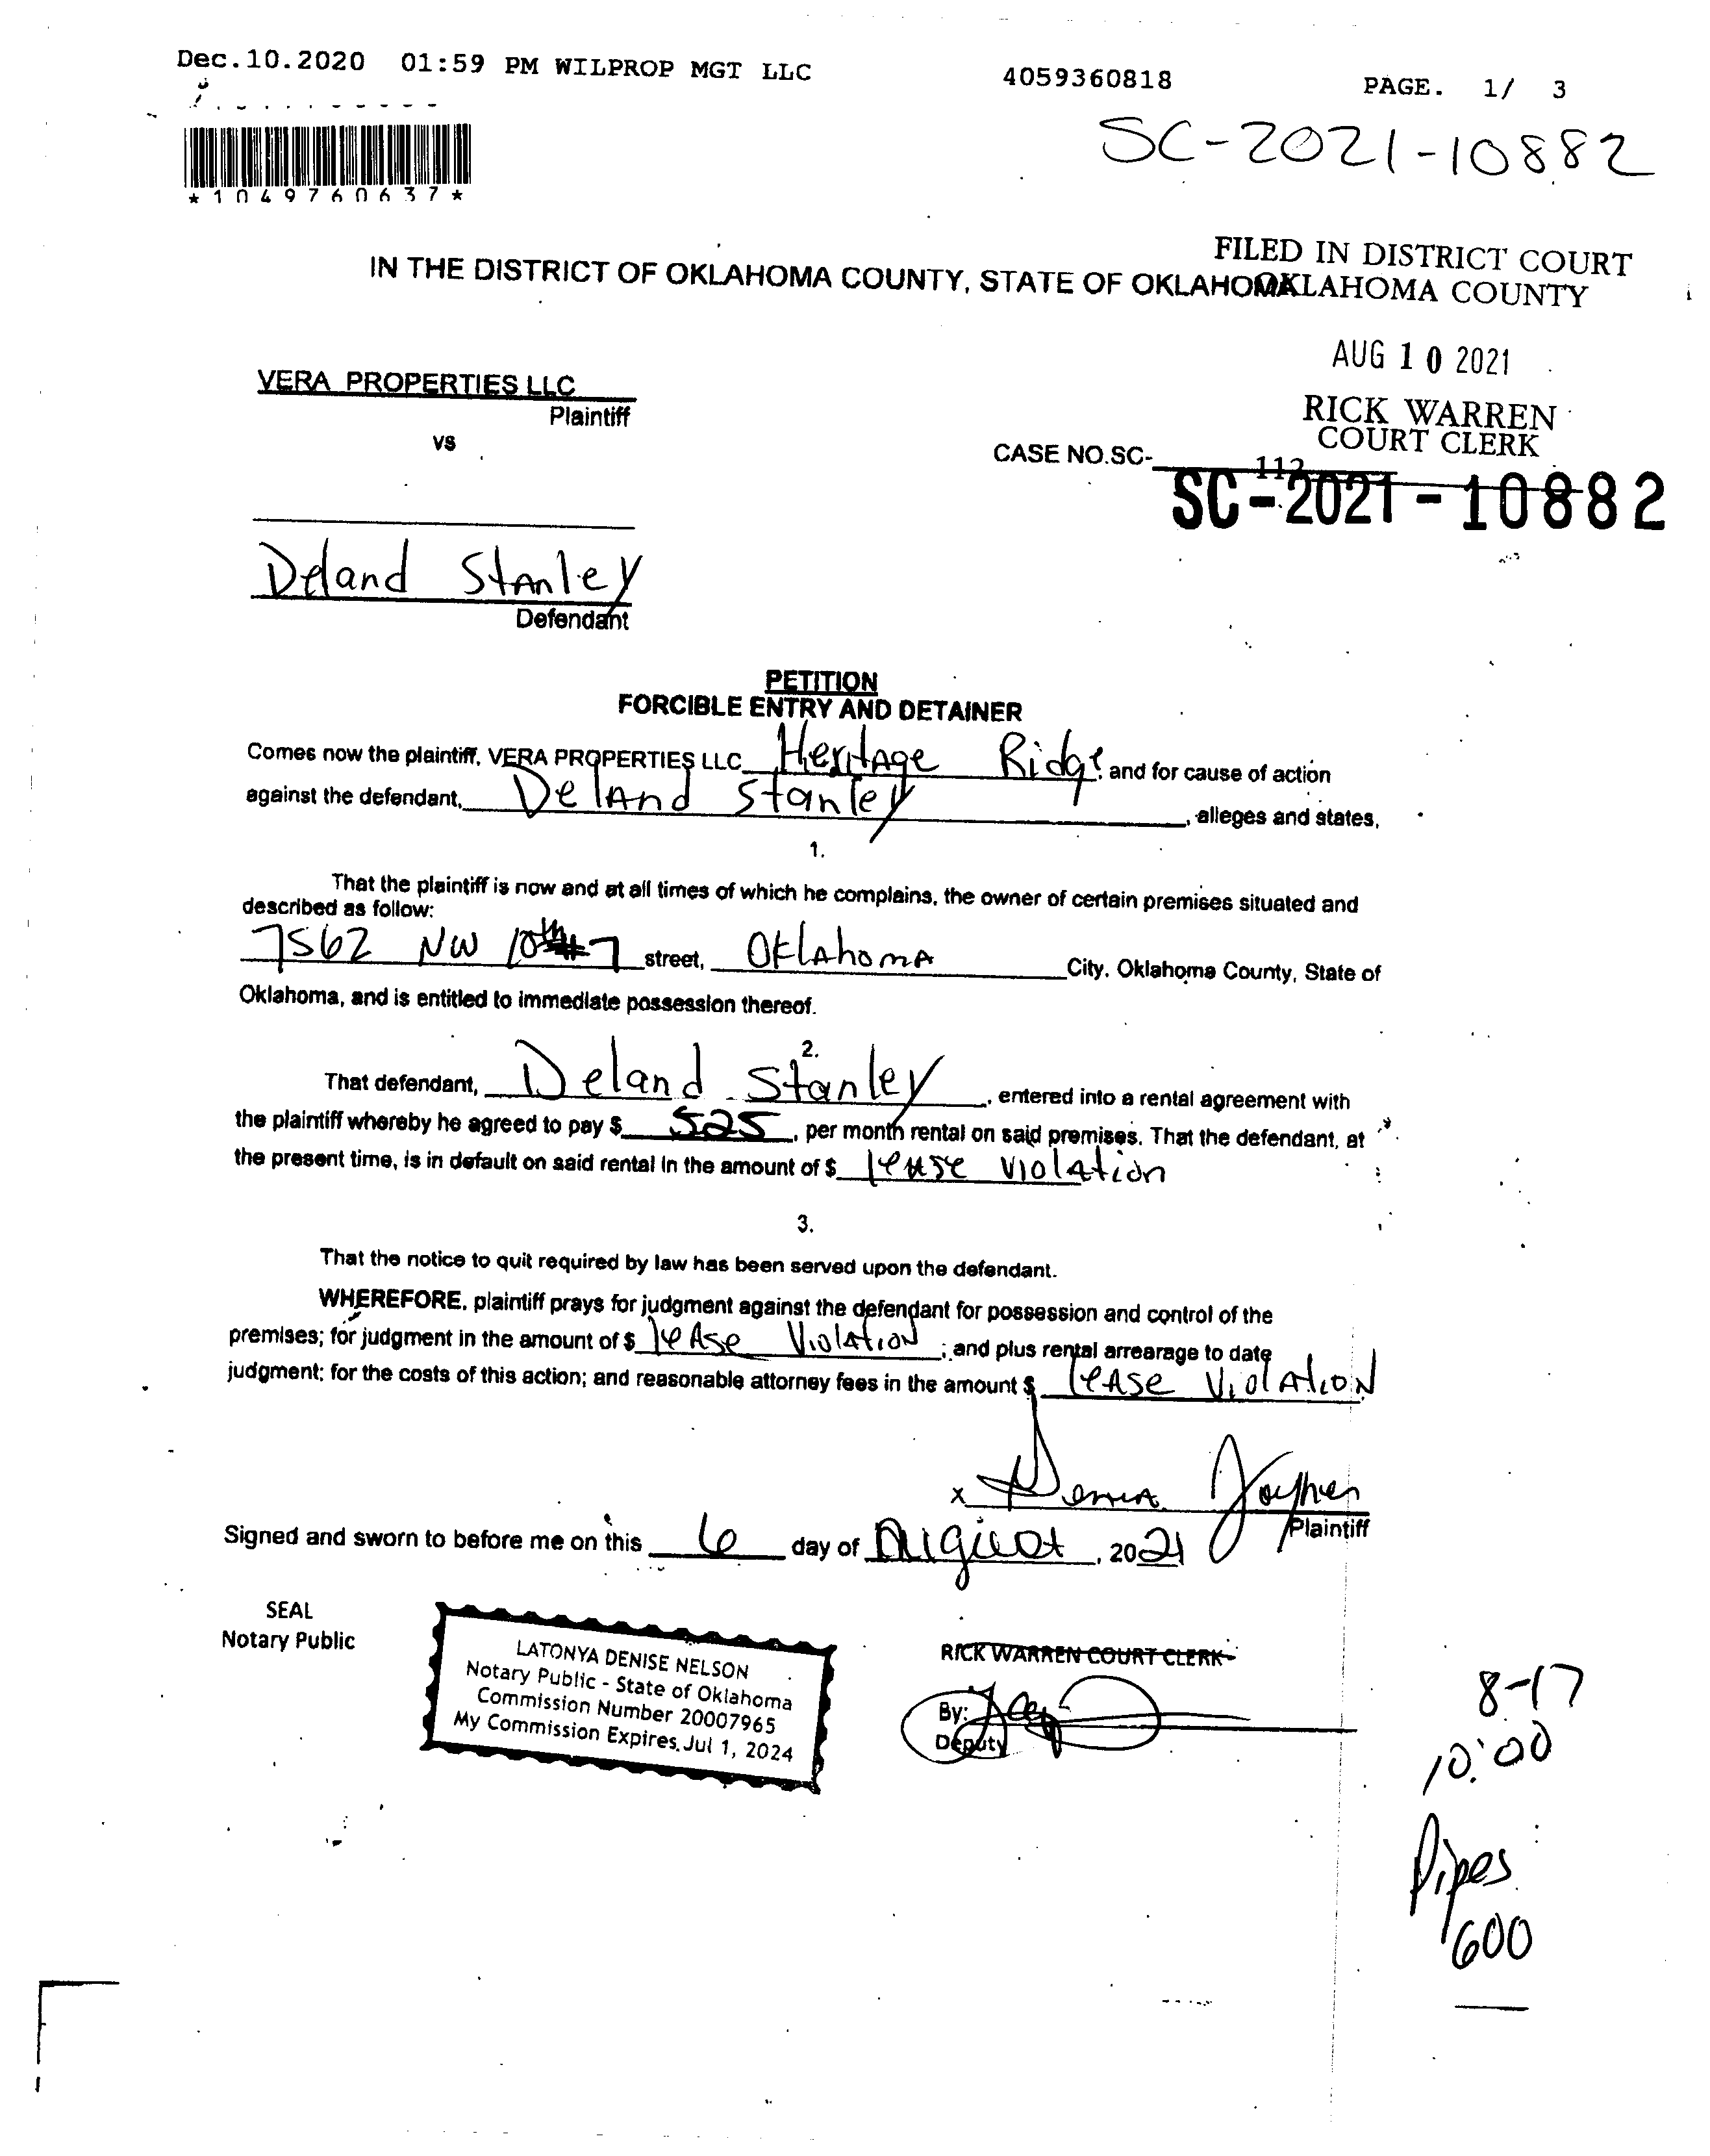 Dec.10.2020 01:59 PM WILPROP MGT LLC 4059360818 PAGE. 1/ 3
SC-2021-10882
*1049760637*
FILED IN DISTRICT COURT
OKLAHOMA COUNTY
IN THE DISTRICT OF OKLAHOMA COUNTY, STATE OF OKLAHOMA
AUG 10 2021
RICK WARREN
COURT CLERK
VERA PROPERTIES LLC
Plaintiff
vs
CASE NO.SC-
112
SC-2021-10882
Deland Stanley
Defendant
PETITION
FORCIBLE ENTRY AND DETAINER
Comes now the plaintiff, VERA PROPERTIES LLC Heritage Ridge, and for cause of action
against the defendant, Deland Stanley, alleges and states,
1.
That the plaintiff is now and at all times of which he complains, the owner of certain premises situated and
described as follow:
7562 NW 10th #7 street, Oklahoma City, Oklahoma County, State of
Oklahoma, and is entitled to immediate possession thereof.
2.
That defendant, Deland Stanley, entered into a rental agreement with
the plaintiff whereby he agreed to pay $ 525, per month rental on said premises. That the defendant, at
the present time, is in default on said rental in the amount of $ lease violation
3.
That the notice to quit required by law has been served upon the defendant.
WHEREFORE, plaintiff prays for judgment against the defendant for possession and control of the
premises; for judgment in the amount of $ lease Violation; and plus rental arrearage to date
judgment; for the costs of this action; and reasonable attorney fees in the amount $ lease Violation
x
Plaintiff
Signed and sworn to before me on this 6 day of August, 2021
SEAL
Notary Public
LATONYA DENISE NELSON
Notary Public - State of Oklahoma
Commission Number 20007965
My Commission Expires Jul 1, 2024
RICK WARREN COURT CLERK
By:
Deputy
8-17
10:00
Pipes
600